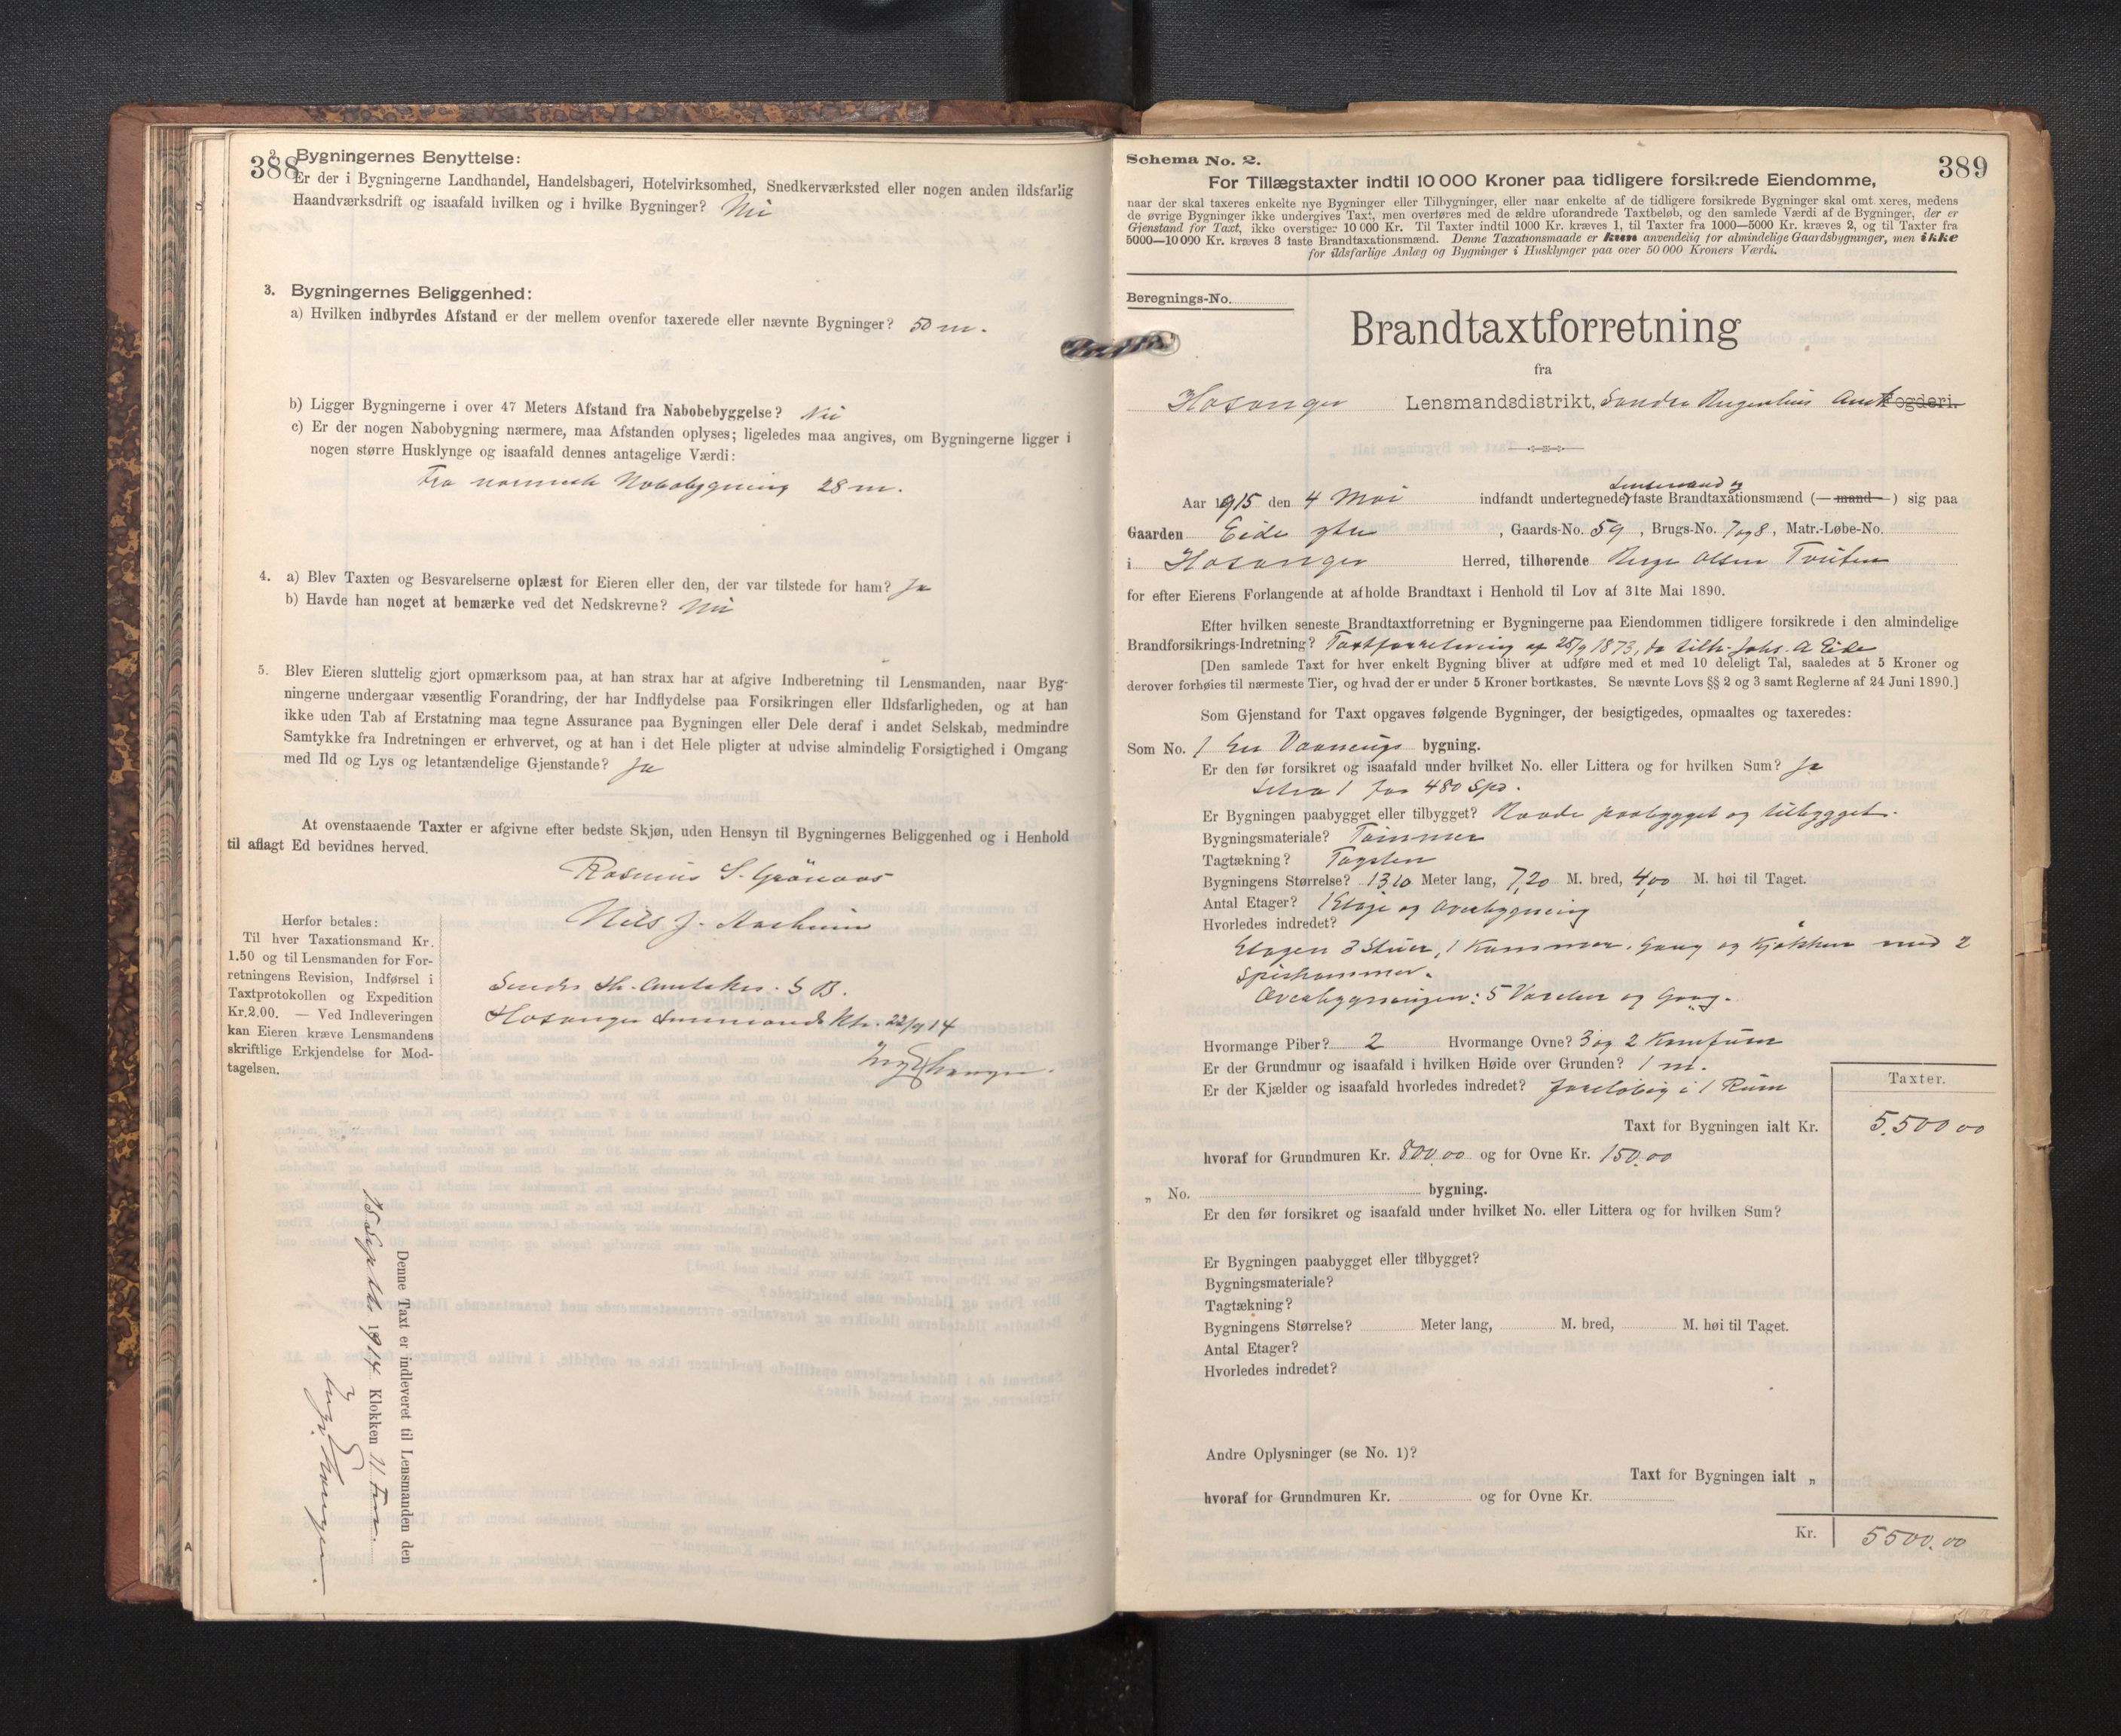 388
2. Bygningernes Benyttelse:
Er der i Bygningerne Landhandel, Handelsbageri, Hotelvirksomhed, Snedkerværksted eller nogen anden ildsfarlig
Haandværksdrift og isaafald hvilken og i hvilke Bygninger? Nei
3. Bygningernes Beliggenhed:
a) Hvilken indbyrdes Afstand er der mellem ovenfor taxerede eller nævnte Bygninger? 50 m.
b) Ligger Bygningerne i over 47 Meters Afstand fra Nabobebyggelse? Nei
c) Er der nogen Nabobygning nærmere, maa Afstanden oplyses; ligeledes maa angives, om Bygningerne ligger i
nogen større Husklynge og isaafald dennes antagelige Værdi:
Fra nærmeste Nabobygning 28 m.
4. a) Blev Taxten og Besvarelserne oplæst for Eieren eller den, der var tilstede for ham? Ja
b) Havde han noget at bemærke ved det Nedskrevne? Nei
5. Blev Eieren sluttelig gjort opmærksom paa, at han strax har at afgive Indberetning til Lensmanden, naar Byg-
ningerne undergaar væsentlig Forandring, der har Indflydelse paa Forsikringen eller Ildsfarligheden, og at han
ikke uden Tab af Erstatning maa tegne Assurance paa Bygningen eller Dele deraf i andet Selskab, medmindre
Samtykke fra Indretningen er erhvervet, og at han i det Hele pligter at udvise almindelig Forsigtighed i Omgang
med Ild og Lys og letantændelige Gjenstande? Ja
At ovenstaaende Taxter er afgivne efter bedste Skjøn, uden Hensyn til Bygningernes Beliggenhed og i Henhold
til aflagt Ed bevidnes herved.
Rasmus S. Grönaas
Nils J.
Herfor betales:
Til hver Taxationsmand Kr.
1.50 og til Lensmanden for For-
retningens Revision, Indførsel i
Taxtprotokollen og Expedition
Kr. 2.00. — Ved Indleveringen
kan Eieren kræve Lensmandens
skriftlige Erkjendelse for Mod-
tagelsen.
S. B.
Hosanger Lensmandsktr. 22/9 14
Denne Taxt er indleveret til Lensmanden den
15 Septbr. 1914 Klokken 11 Form.
389
Schema No. 2.
For Tillægstaxter indtil 10 000 Kroner paa tidligere forsikrede Eiendomme,
naar der skal taxeres enkelte nye Bygninger eller Tilbygninger, eller naar enkelte af de tidligere forsikrede Bygninger skal omtaxeres, medens
de øvrige Bygninger ikke undergives Taxt, men overføres med de ældre uforandrede Taxtbeløb, og den samlede Værdi af de Bygninger, der er
Gjenstand for Taxt, ikke overstiger 10 000 Kr. Til Taxter indtil 1000 Kr. kræves 1, til Taxter fra 1000—5000 Kr. kræves 2, og til Taxter fra
5000—10 000 Kr. kræves 3 faste Brandtaxationsmænd. Denne Taxationsmaade er kun anvendelig for almindelige Gaardsbygninger, men ikke
for ildsfarlige Anlæg og Bygninger i Husklynger paa over 50 000 Kroners Værdi.
Beregnings-No.
Brandtaxtforretning
fra
Hosanger Lensmandsdistrikt, Søndre Bergenhus Amt Fogderi.
Lensmand og
Aar 1915 den 4 Mai indfandt undertegnede faste Brandtaxationsmænd (— mand — ) sig paa
Gaarden Eide ytre, Gaards-No. 59, Brugs-No. 7 og 8, Matr.-Løbe-No.
i Hosanger Herred, tilhørende Berge Olsen Tveiten
for efter Eierens Forlangende at afholde Brandtaxt i Henhold til Lov af 31te Mai 1890.
Efter hvilken seneste Brandtaxtforretning er Bygningerne paa Eiendommen tidligere forsikrede i den almindelige
Brandforsikrings-Indretning? Taxtforretning af 25/9 1873, da tilh. Johs. A Eide
[Den samlede Taxt for hver enkelt Bygning bliver at udføre med et med 10 deleligt Tal, saaledes at 5 Kroner og
derover forhøies til nærmeste Tier, og hvad der er under 5 Kroner bortkastes. Se nævnte Lovs §§ 2 og 3 samt Reglerne af 24 Juni 1890.]
Som Gjenstand for Taxt opgaves følgende Bygninger, der besigtigedes, opmaaltes og taxeredes:
Som No. 1 En Vaanings bygning.
Er den før forsikret og isaafald under hvilket No. eller Littera og for hvilken Sum? Ja
Litra 1 for 480 Spd.
Er Bygningen paabygget eller tilbygget? Baade paabygget og tilbygget.
Bygningsmateriale? Tømmer
Tagtækning? Tagsten
Bygningens Størrelse? 13,10 Meter lang, 7,20 M. bred, 4,00 M. høi til Taget.
Antal Etager? 1 Etage og Overbygning
Hvorledes indredet?
Etagen 3 Stuer, 1 Kammer, Gang og Kjøkken med 2
Spiskammer.
Overbygningen: 5 Værelser og Gang.
Hvormange Piber? 2 Hvormange Ovne? 3 og 2 Komfurer
Er der Grundmur og isaafald i hvilken Høide over Grunden? 1 m.
Er der Kjælder og isaafald hvorledes indredet? foreløbig i 1 Rum
Taxter.
Taxt for Bygningen ialt Kr. 5.500 00
hvoraf for Grundmuren Kr. 800.00 og for Ovne Kr. 150.00
„ No. bygning.
Er den før forsikret og isaafald under hvilket No. eller Littera og for hvilken Sum?
Er Bygningen paabygget eller tilbygget?
Bygningsmateriale?
Tagtækning?
Bygningens Størrelse? Meter lang, M. bred, M. høi til Taget.
Antal Etager?
Hvorledes indredet?
Andre Oplysninger (se No. 1)?
Taxt for Bygningen ialt „
hvoraf for Grundmuren Kr. og for Ovne Kr.
Kr. 5500.00